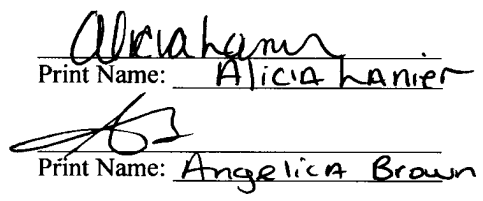 Alicia Lanier
Print Name: Alicia Lanier
Print Name: Angelica Brown